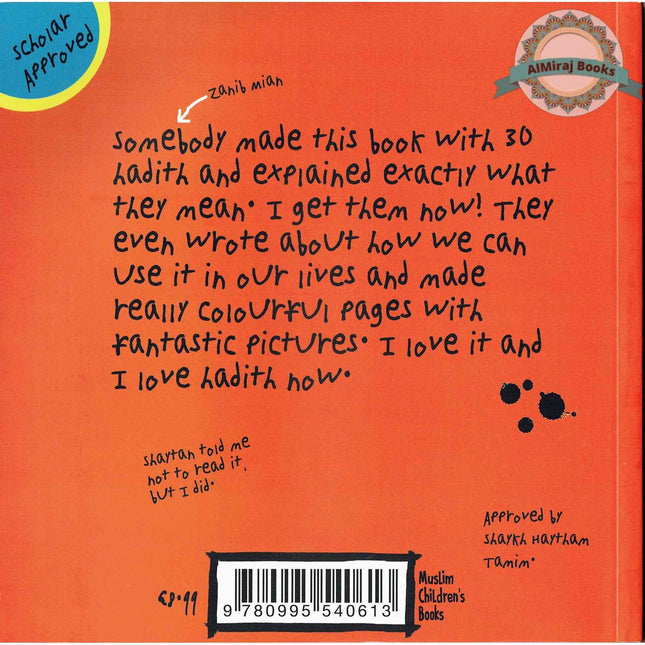 Scholar
Approved
AlMiraj Books
Zanib Mian
Somebody made this book with 30
hadith and explained exactly what
they mean. I get them now! They
even wrote about how we can
use it in our lives and made
really colourful pages with
fantastic pictures. I love it and
I love hadith now.
Shaytan told me
not to read it,
but I did.
Approved by
Shaykh Haytham
Tamim.
£8.99
9 780995 540613
Muslim
Children's
Books